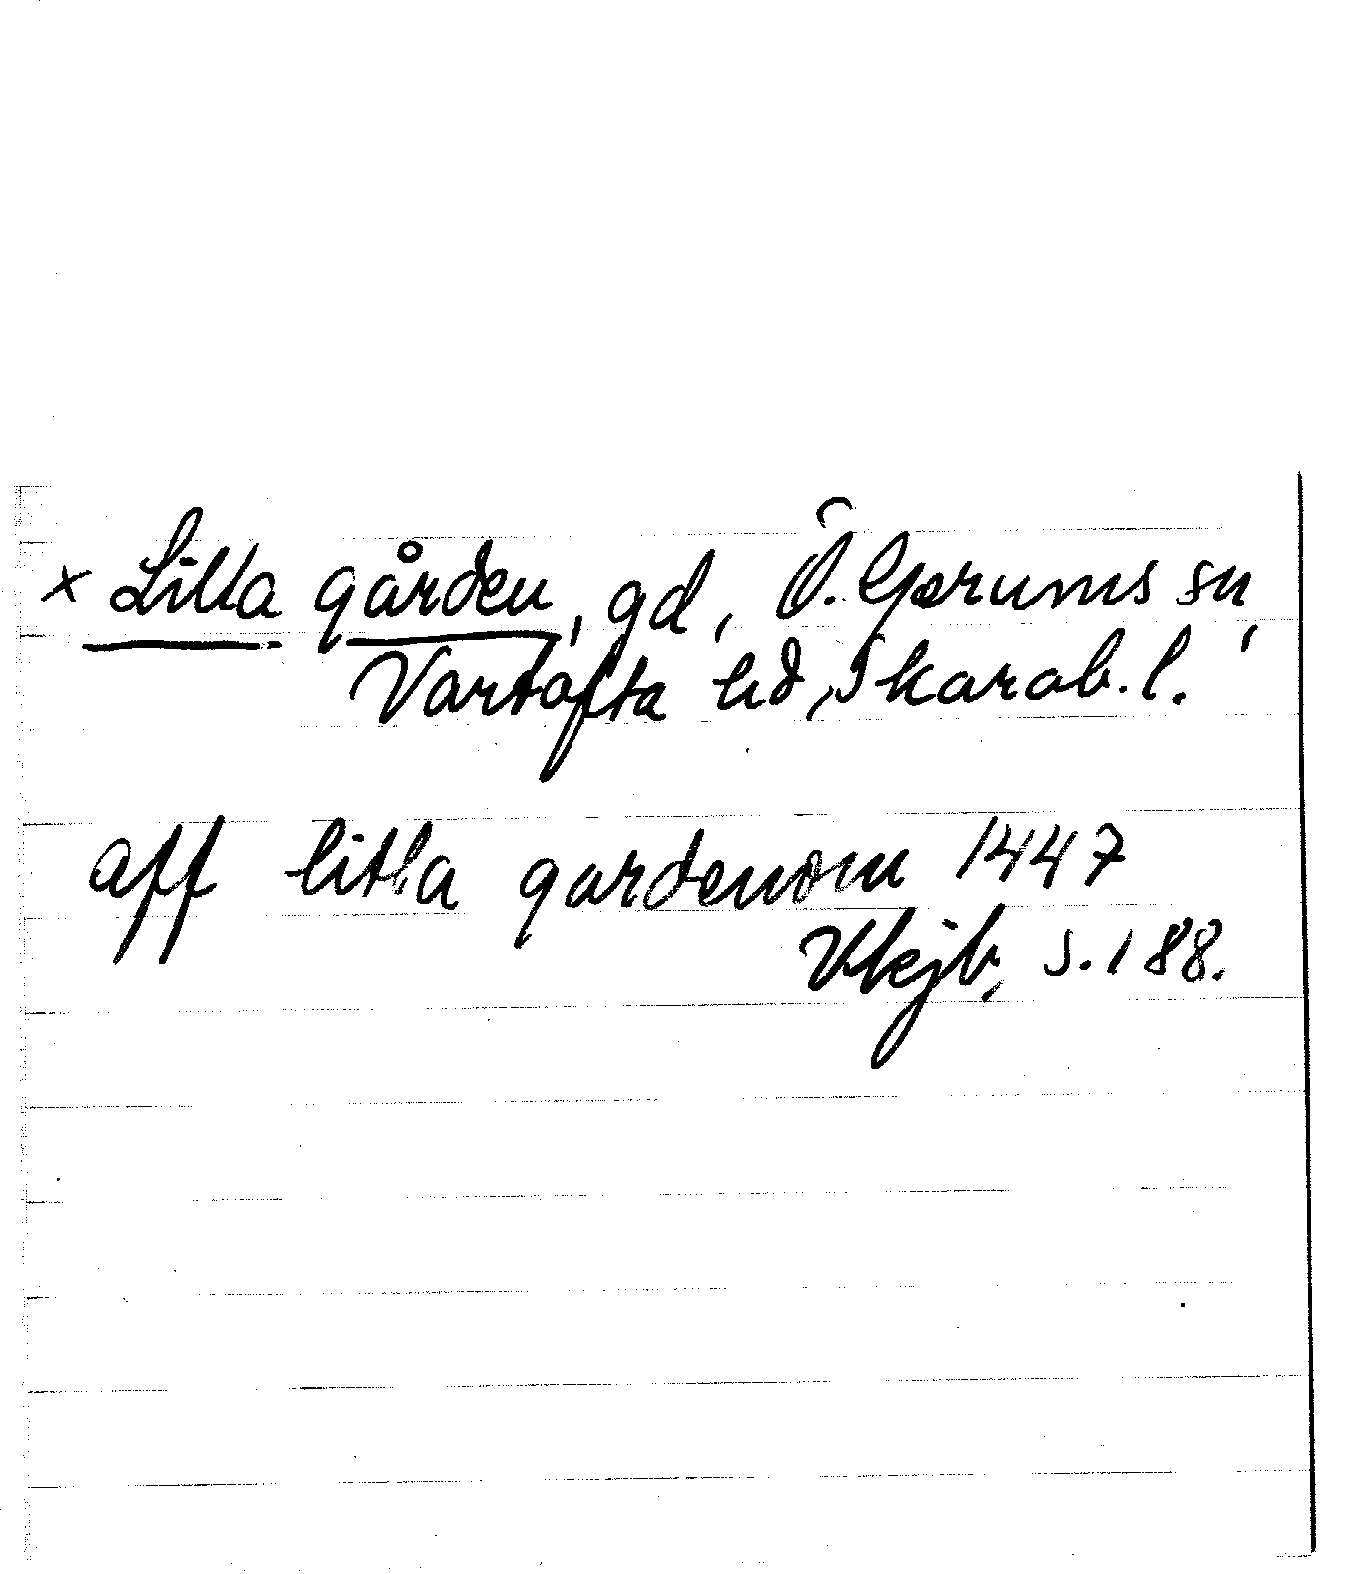 x Lilla gården, gd, Ö. Gerums sn,
Vartofta hd, Skarab. l.
aff litla gardenom 1447
Vkjb, s. 188.